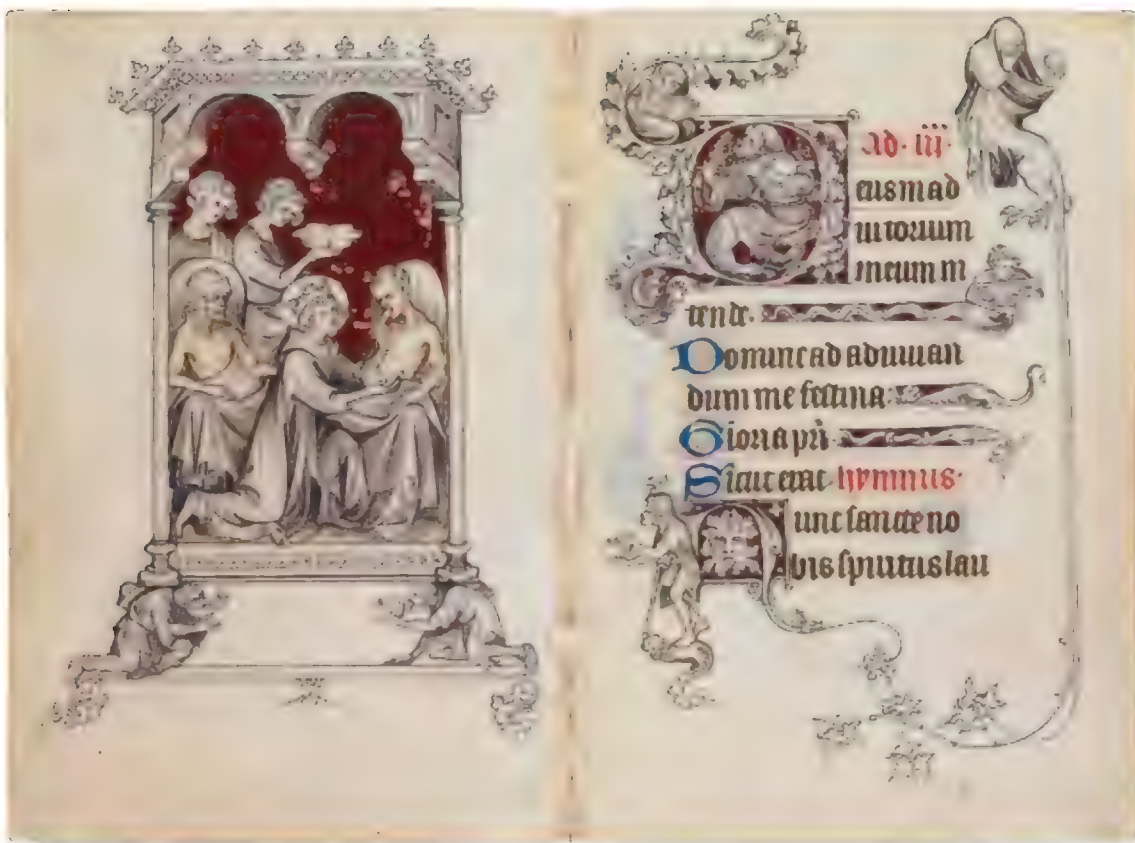 ad · iii ·
eus in ad
iutorium
meum in
tende ·
Domine ad adiuuan
dum me festina
Gloria pri
Sicut erat hympnus ·
Nunc sancte no
bis spiritus lau